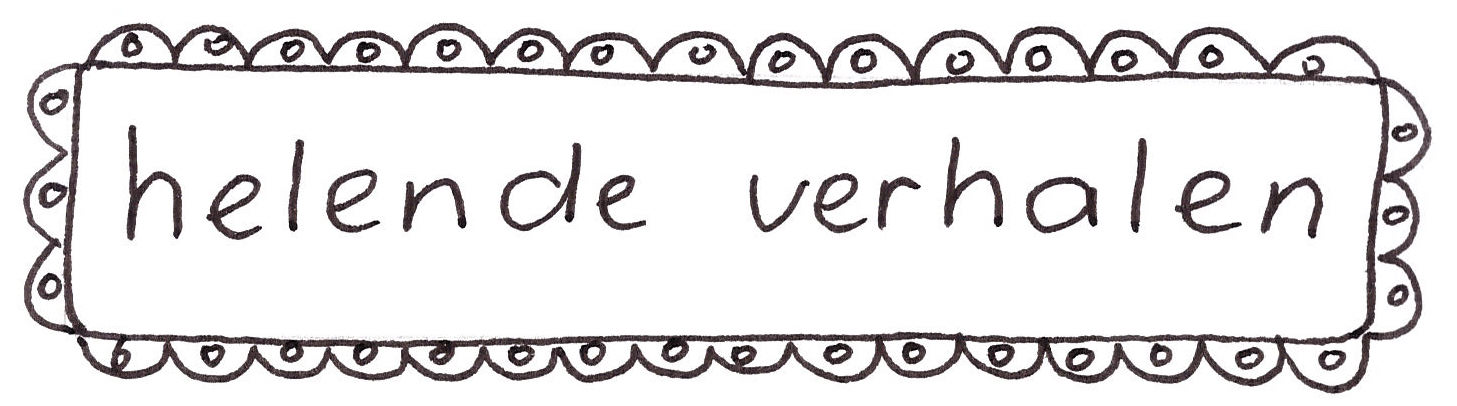 helende verhalen